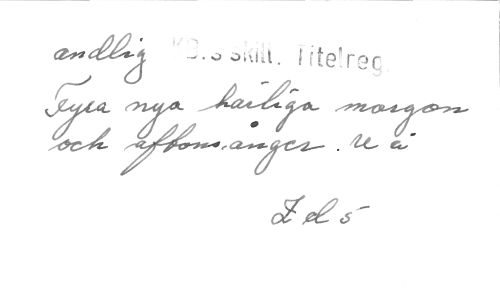 andlig KB:s skill. Titelreg.
Fyra nya härliga morgon
och aftonsånger. u å
Z d 5